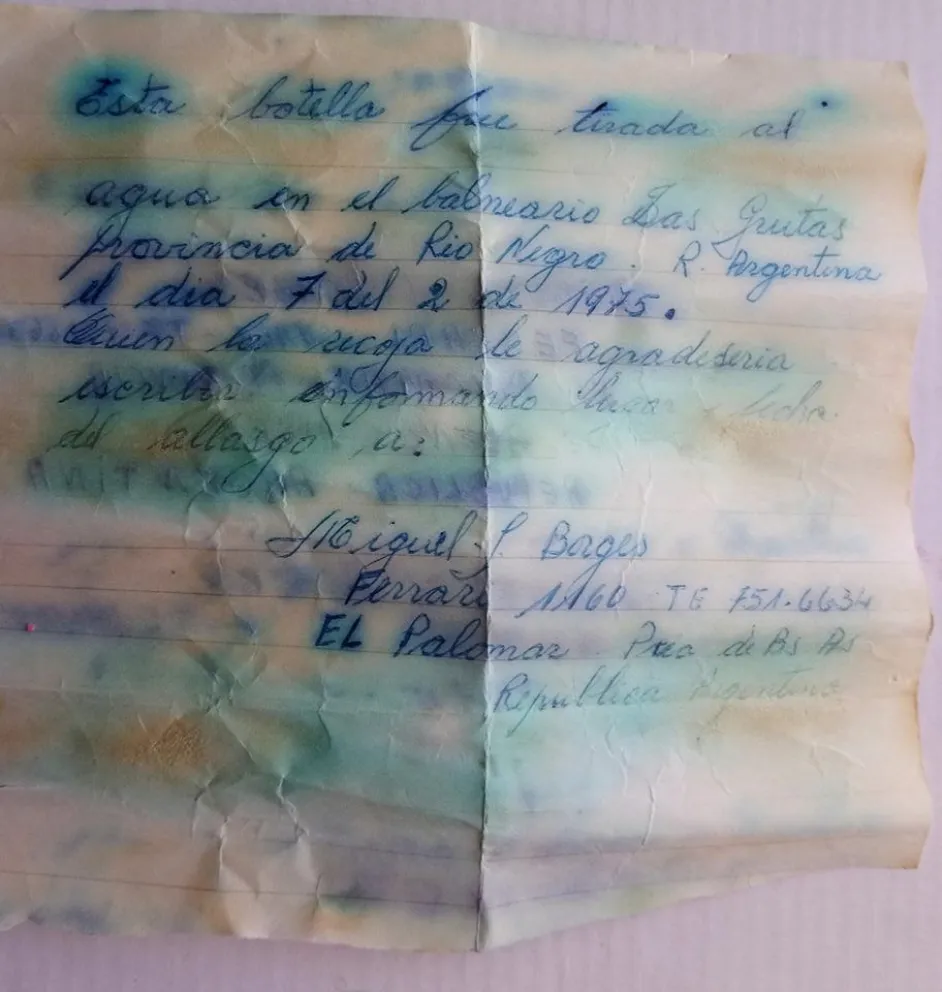 Esta botella fue tirada al
agua en el balneario Las Grutas
provincia de Rio Negro. R. Argentina
el dia 7 del 2 de 1975.
Quien la recoja le agradeseria
escribir infomando lugar y fecha
del allasgo a:
REPUBLICA ARGENTINA
Miguel S. Borges
Ferrari 1160 TE 751.6634
EL Palomar Pcia de Bs As
Republica Argentina